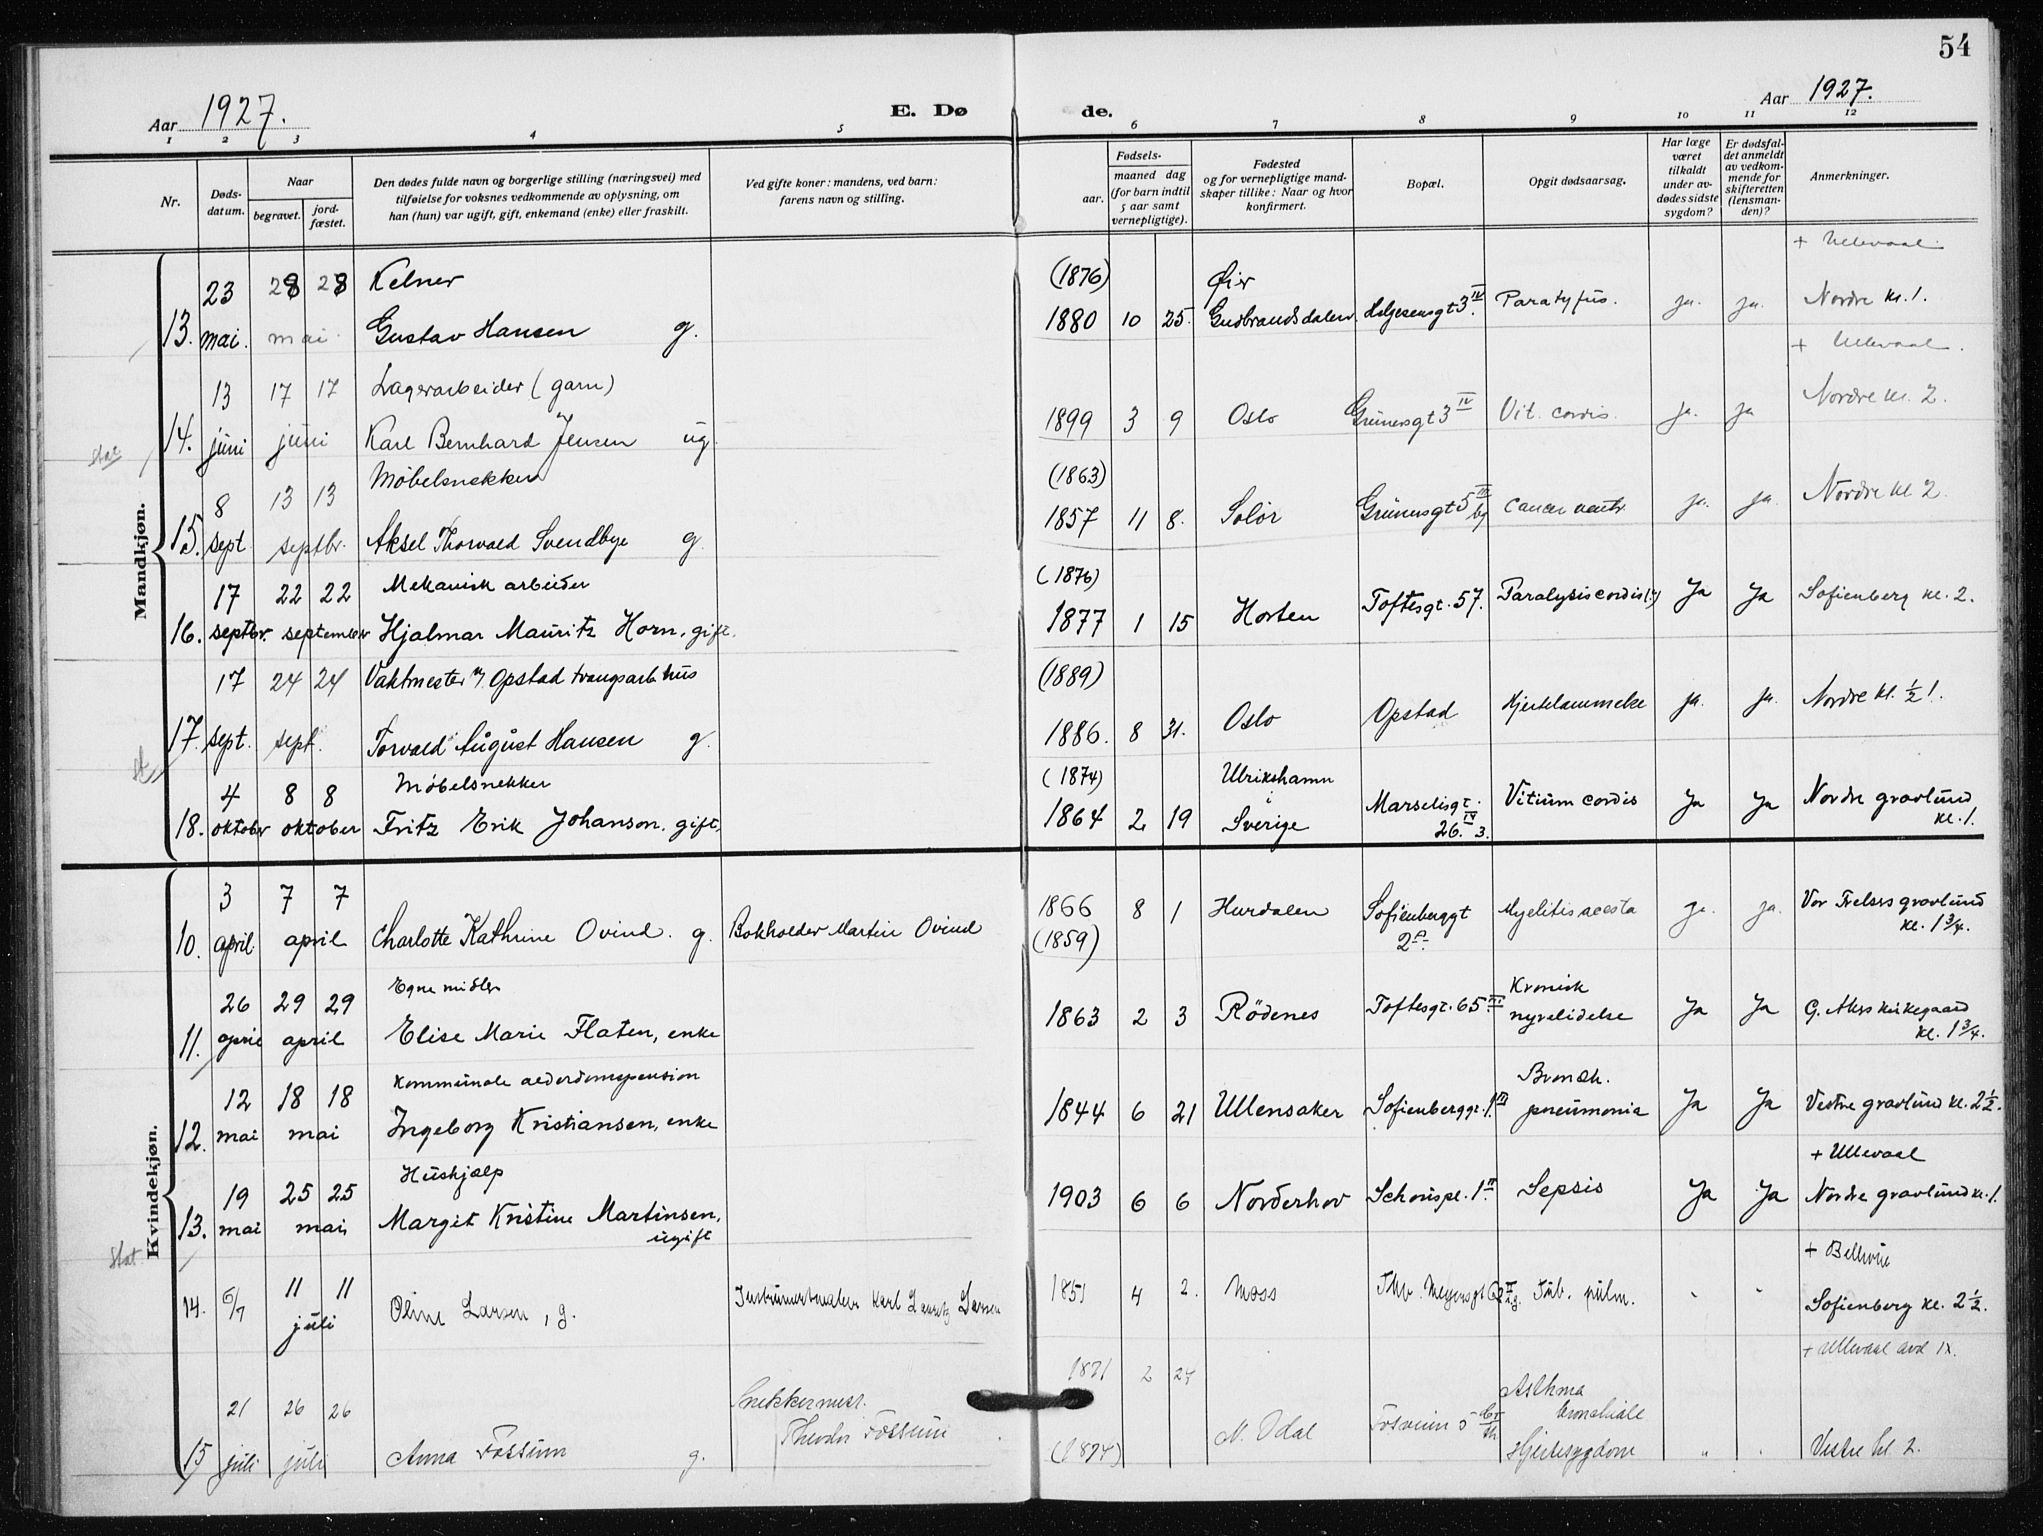 54
Aar 1927.
E. Dø de.
Aar 1927.
1 2 3 4 5 6 7 8 9 10 11 12
Nr.
Døds-
datum.
Naar
begravet.
jord-
fæstet.
Den dødes fulde navn og borgerlige stilling (næringsvei) med
tilføielse for voksnes vedkommende av oplysning, om
han (hun) var ugift, gift, enkemand (enke) eller fraskilt.
Ved gifte koner: mandens, ved barn:
farens navn og stilling.
Fødsels-
aar.
maaned dag
(for barn indtil
5 aar samt
vernepligtige).
Fødested
og for vernepligtige mand-
skaper tillike: Naar og hvor
konfirmert.
Bopæl.
Opgit dødsaarsag.
Har læge
været
tilkaldt
under av-
dødes sidste
sygdom?
Er dødsfal-
det anmeldt
av vedkom-
mende for
skifteretten
(lensman-
den)?
Anmerkninger.
Mandkjøn.
+ Ullevaal.
23 28 28 Kelner (1876) Øier
13. mai. mai Gustav Hansen g. 1880 10 25. Gudbrandsdalen. Helgesensgt 3 IV. Paratyfus. ja. ja. Nordre kl. 1.
+ Ullevaal.
13 17 17 Lagerarbeider (garn)
14. juni juni Karl Bernhard Jensen ug. 1899 3 9 Oslo Grünersgt 3 IV Vit. cordis. ja. ja Nordre kl. 2.
Stat
8 13 13 Møbelsnekker (1863)
15. sept. septbr. Aksel Thorvald Svendbye g. 1857 11 8. Solør Grünersgt 5 III Cancer ventr. ja. ja. Nordre kl 2.
17 22 22 Mekanisk arbeider (1876)
16. septbr. september Hjalmar Mauritz Horn, gift. 1877 1 15 Horten Toftesgt. 57. Paralysis cordis (?) Ja Ja Sofienberg kl. 2.
17 24 24 Vaktmester v/ Opstad tvangsarb.hus (1889)
17. sept. sept. Torvald August Hansen g. 1886. 8 31. Oslo Opstad Hjertelammelse ja. ja. Nordre kl. ½ 1.
St
4 8 8 Møbelsnekker (1874) Ulrikshamn
18. oktober oktober Fritz Erik Johanson, gift. 1864 2 19 i Sverige Marselisgt. 26. IV 3. Vitium cordis Ja Ja Nordre gravlund kl. 1.
Kvindekjøn.
3 7 7 1866 8 1 Hurdalen Sofienberggt Myelitis acesta ja. ja. Vor Frelsers gravlund
10. april. april Charlotte Kathrine Ovind. g. Bokholder Martin Ovind (1859) kl. 1 ¾.
26 29 29 Egne midler Kronisk
11. april april Elise Marie Flaten, enke 1863 2 3 Rödenes Toftesgt. 65 nyrelidelse Ja Ja G. Akers kirkegaard kl. 1 ¾.
12 18 18 Kommunale alderdomspension Bronch.
12. mai mai Ingeborg Kristiansen, enke 1844 6 21 Ullensaker Sofienberggt. 1 III pneumonia Ja Ja Vestre gravlund kl. 2 ½.
Hushjælp + Ullevaal
19 25 25 1903 6 6 Norderhov Schouspl. 1 II Sepsis Ja Ja Nordre gravlund kl. 1.
13. mai mai Margit Kristine Martinsen,
ugift
Stat.
+ Bellevue
14. 6/7 11 11 juli Oline Larsen, g. Instrumentmaker Karl Lauritz Larsen 1851 4 2. Moss Thv. Meyersgt Tub. pulm. " " Sofienberg kl. 2 ½.
+ Ullevaal avd IX.
21 26 26 Snekkermest. 1871 2 24 Asthma bronchiale
15 juli juli Anna Fossum g. Theodor Fossum (1874) N. Odal Fosveien 5 Hjertesygdom " " Vestre kl. 2.